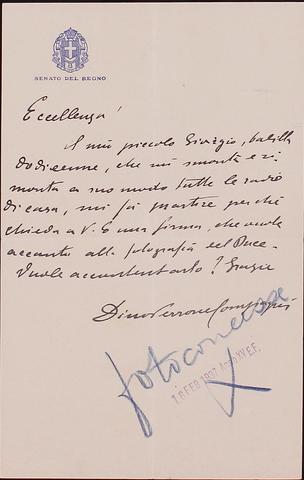 SENATO DEL REGNO
Eccellenza!
Il mio piccolo Giorgio, balilla
dodicenne, che mi smonta e ri
monta a suo modo tutte le radio
di casa, mi fa martire perchè
chieda a V. E. una firma, che vuole
accanto alla fotografia del Duce.
Vuole accontentarlo? Grazie
Dino Perrone Compagni
foto concessa
18 FEB 1937 Anno XV E.F.